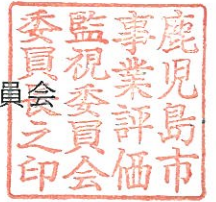 員会
鹿児島市
事業評価
監視委員会
委員長之印